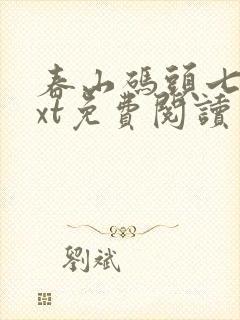 春山碼頭七
xt免費閱讀
劉斌